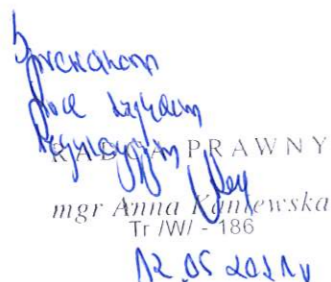 Sprawdzono
pod względem
RADCA PRAWNY
mgr Anna Kaniewska
Tr /W/ - 186
12.05.2021r